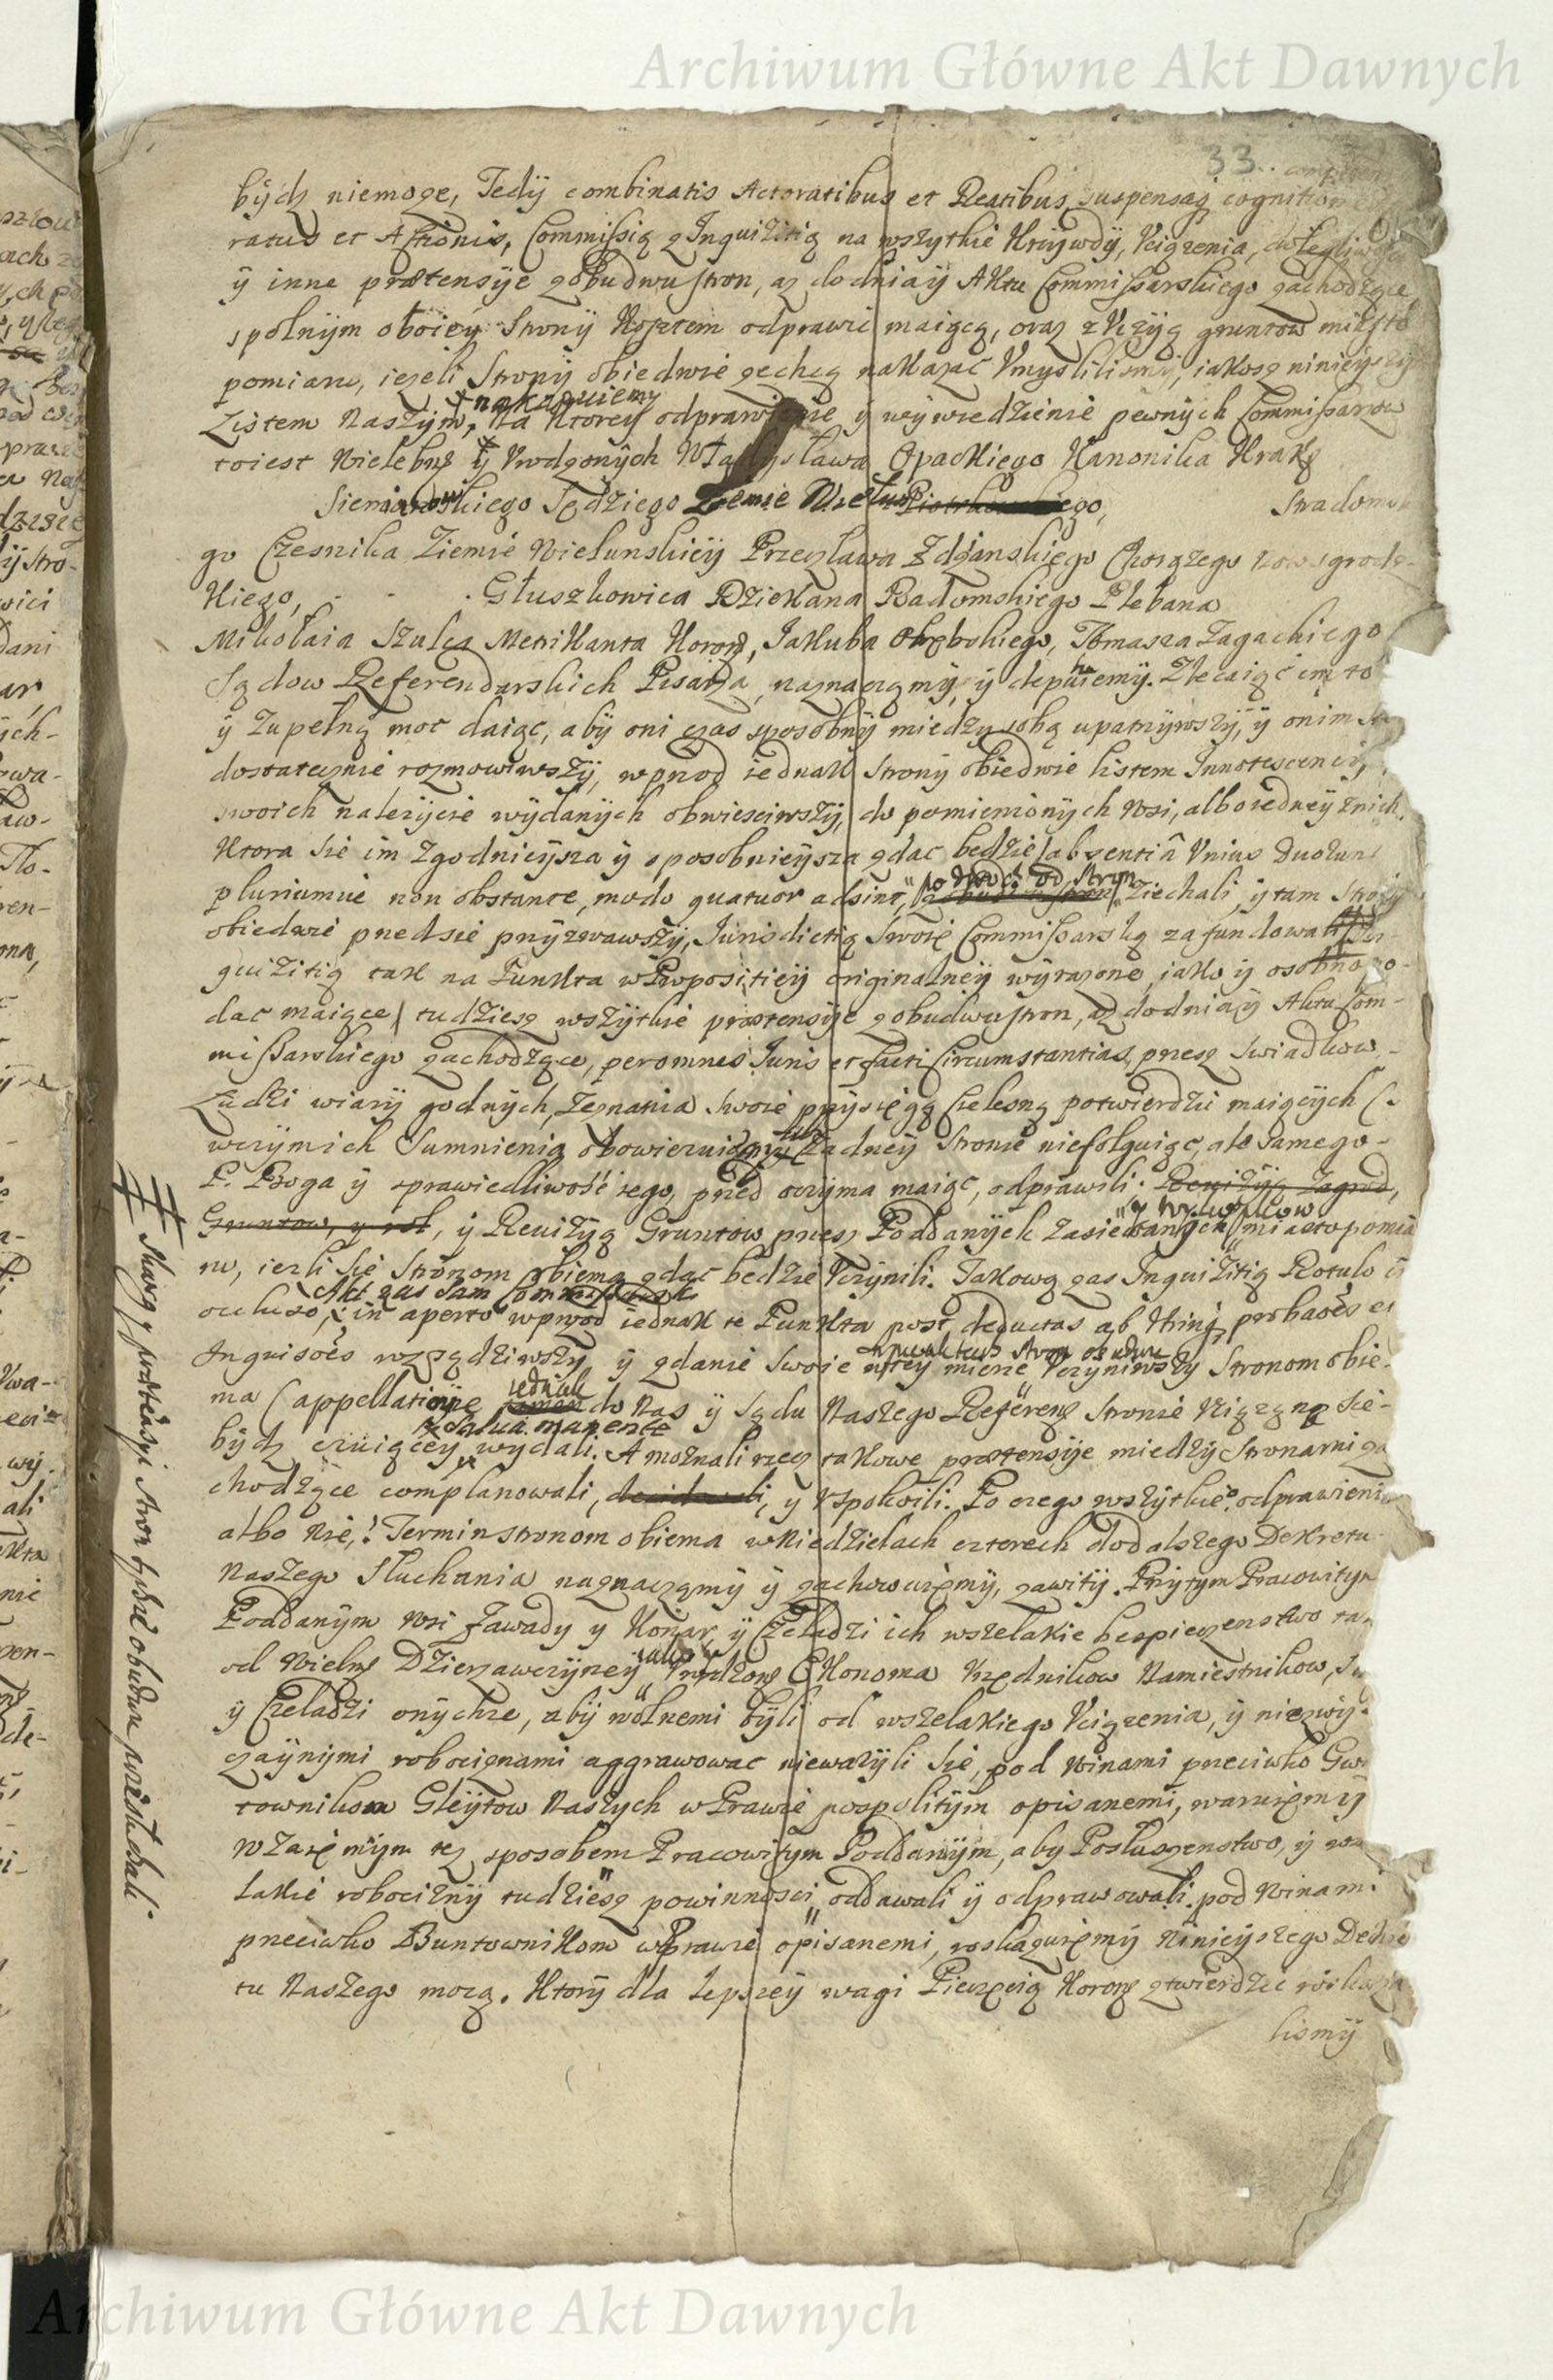 Archiwum Główne Akt Dawnych
33
bydz niemoge, Tedÿ combinatis Actoratibus et Reatibus suspensaq cognitione
ratus et Actionis, Commissią z Inquizitią na wszytkie Krzywdÿ, Uciązenia, dolegliwosci
ÿ inne prætensÿe z obudwu stron, az do dnia ÿ Aktu Commissarskiego zachodzące
spolnÿm oboieÿ Stronÿ Kosztem odprawić maiącą, oraz z
pomiaru, iezeli Stronÿ obiedwie zechcą nakazać Umyslilismy, iakosz ninieyszym
nakazuiemy
Listem Naszÿm, Na Ktoreÿ odprawienie ÿ wÿwiedzienie pewnÿch Commissarzow
toiest Wielebne ÿ Urodzonÿch Władysława Opackiego Kanonika Krak
Siemianowskiego Sędziego Ziemie Wielun ego, Stradoms
go Czesnika Ziemie Wielunskieÿ Przecława Zdzanskiego Chorązego Nowogrodz
kiego, Głuszkowica Dziekana Radomskiego Plebana
Mikołaia Szulca Metrikanta Koron, Jakuba Obrębskiego, Tomasza Zagackiego
Sądow Referendarskich Pisarza, naznaczamÿ, ÿ deputuiemÿ. Zlecaiąc im to
ÿ zupełną moc daiąc, abÿ oni czas sposobnÿ miedzy sobą upatrzÿwszÿ, ÿ onim
dostatecznie rozmowiwszÿ, wprzod iednak Stronÿ obiedwie listem Innotescencÿi
swoich nalezÿcie wÿdanÿch obwiesciwszÿ, do pomienionÿch Wsi, albo iedneÿ znich
Ktora sie im zgodnieÿsza ÿ sposobnieÿsza zdac bedzie / absentiâ Unius Duorum
pluriumue non obstante, modo quatuor adsint, po dwoch od Stron Ziechali, ÿ tam Stronÿ
obiedwie przedsie przÿzwawszÿ, Iurisdictią Swoię Commissarską zafundowali, In-
quizitią tak na Punkta w Propositieÿ originalneÿ wÿrazone, iako ÿ osobno po-
dac maiące / tudziesz wszÿtkie prætensÿe z obudwu stron, az do dnia ÿ Aktu Com-
missarskiego zachodzące, per omnes Iuris et facti Circumstantias, przez Swiadkow
Ludzi wiarÿ godnÿch, Zeznania swoie przÿsięgą cielesną potwierdzic maiącÿch
w czÿm ich Sumnienia obowiezuiemÿ zadneÿ Stronie niefolguiąc, ale samego
P. Boga ÿ sprawiedliwość iego, przed oczÿma maiąc, odprawili. Rewizÿą Zagrod,
Gruntow, y rol, ÿ Rewizÿą Gruntow przez Poddanÿch Zasiewanÿch y wymiarow miasto pomia
ru, iezli sie Stronom obiema zdac bedzie Uczÿnili. Takową zas Inquizitią Rotulo
Akt zas sam Commissarski
occluso, in aperto wprzod iednak te Punkta post deductas ab utrinq probaões et
Inquisões rozsądziwszy, ÿ zdanie Swoie w teÿ mierze Uczÿniwszÿ Stronom obie-
ma (appellatiÿe iednak do Nas ÿ Sądu Naszego Referen Stronie Uciązną sie
salua manente
bÿdz czuiąceÿ, wÿdali. A moznali rzecz takowe prætensÿe miedzÿ Stronami za
chodzące complanowali, ÿ Uspokoili. Po czego wszÿtkiego odprawieniu
albo nie, Termin stronom obiema w Niedzielach czterech do dalszego Dekretu
Naszego Słuchania naznaczamÿ ÿ zachowuiemÿ, zawitÿ. Przÿtym Pracowitym
Poddanÿm Wsi Zawady y Konar ÿ Czeladzi ich wszelakie bespieczenstwo ta
od Wielm Dzierzawczÿneÿ iako Ekonoma Urzednikow Namiestnikow, Su
ÿ Czeladzi onÿchze, abÿ wolnemi bÿli od wszelakiego Uciązenia, ÿ niezwÿ-
czaÿnÿmi robociznami aggrawowac niewazÿli sie, pod Winami przeciwko Gwa
townikom Gleÿtow Naszÿch w Prawie pospolitÿm opisanemi, waruiemÿ
Wzaiemnÿm tez sposobem Pracowitÿm Poddanÿm, aby Posłuszenstwo, ÿ wsze
lakie robociznÿ tudziesz powinnosci oddawali ÿ odprawowali, pod Winami
przeciwko Buntownikom w Prawie opisanemi, roskazuiemÿ Ninieÿszego Dekre
tu Naszego mocą. Ktorÿ dla lepszeÿ wagi Pieczęcią Koron ztwierdzic roskaza
lismÿ
Archiwum Główne Akt Dawnych